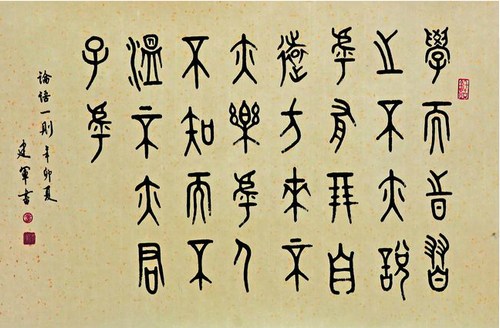 學而時習
之不亦說
乎有朋自
遠方來不
亦樂乎人
不知而不
溫不亦君
子乎
論語一則 辛卯夏
建軍書